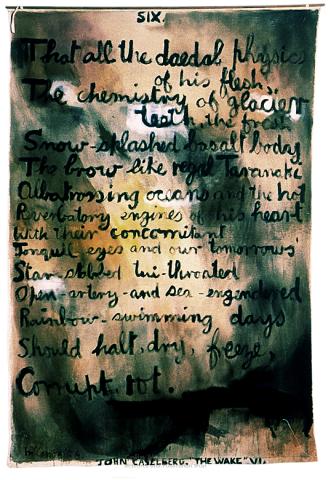 SIX.
That all the daedal physics
of his flesh,
The chemistry of glacier
teeth, the fresh
Snow-splashed basalt body
The brow like regal Taranaki
Albatrossing oceans and the hot
Reverbatory engines of his heart
With their concomitant
Jonquil eyes and our tomorrows'
Star-stobbed tui-throated
Open-artery-and sea-engendered
Rainbow-swimming days
Should halt, dry, freeze,
Corrupt, rot.
JOHN CASELBERG. "THE WAKE" VI.